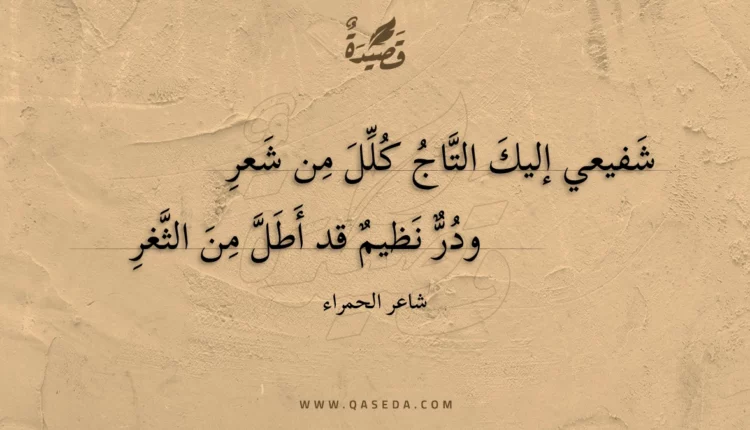 قَصِيدَةٌ
شَفيعي إليكَ التَّاجُ كُلِّلَ مِن شَعرِ
ودُرٌّ نَظيمٌ قد أَطَلَّ مِنَ الثَّغرِ
شاعر الحمراء
WWW.QASEDA.COM